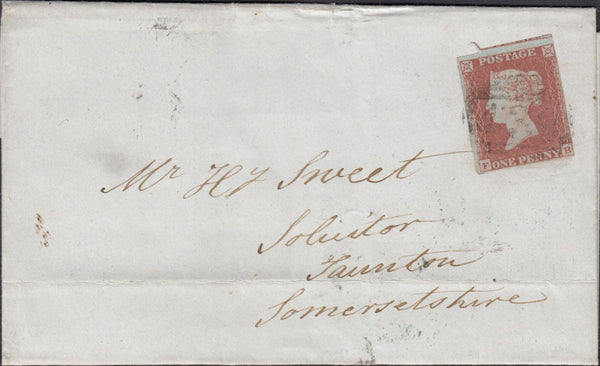 POSTAGE
F ONE PENNY B
Mr H J Sweet
Solicitor
Taunton
Somersetshire